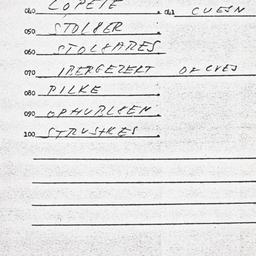 040 LOPETE 041 CUESN
050 STOLBER
060 STOLBARES
070 IBERGEZERT OF CVES
080 PILKE
090 OPHURLEEN
100 STRUSHRES